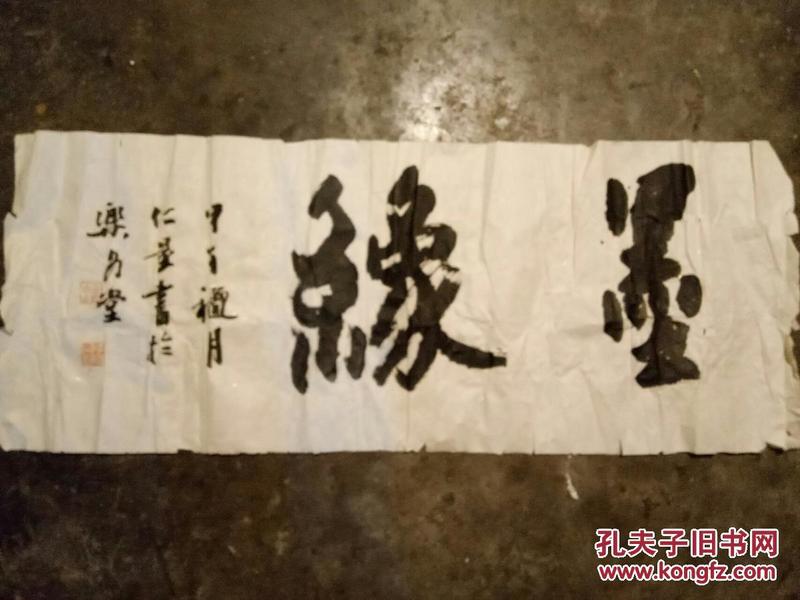 墨緣
甲子穐月
仁量書於
樂乃堂
孔夫子旧书网
www.kongfz.com